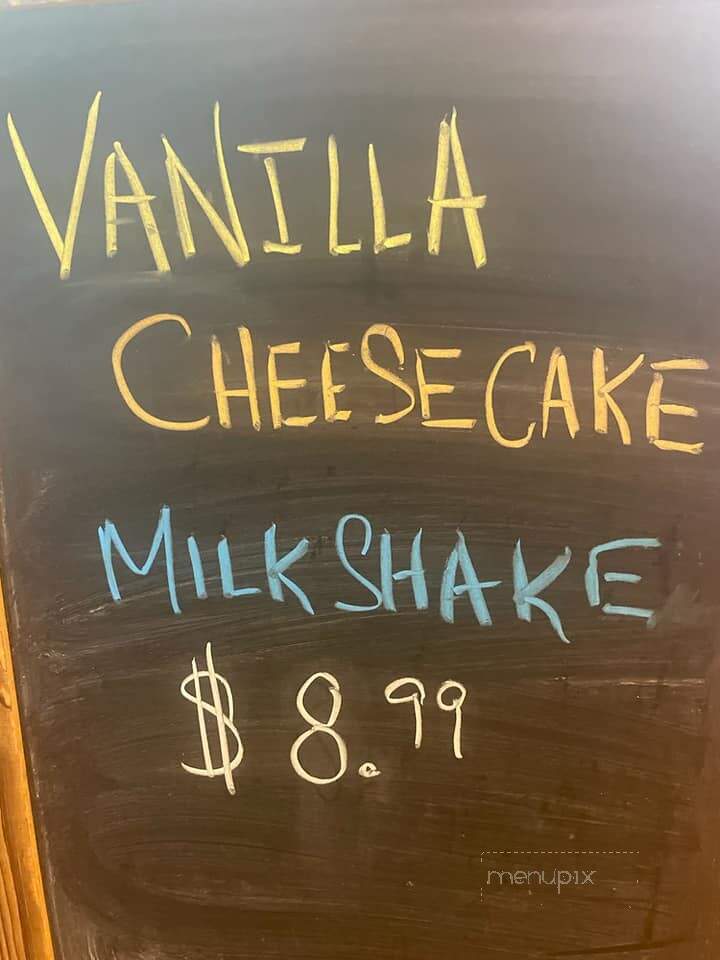 VANILLA
CHEESECAKE
MILKSHAKE
$8.99
menupix